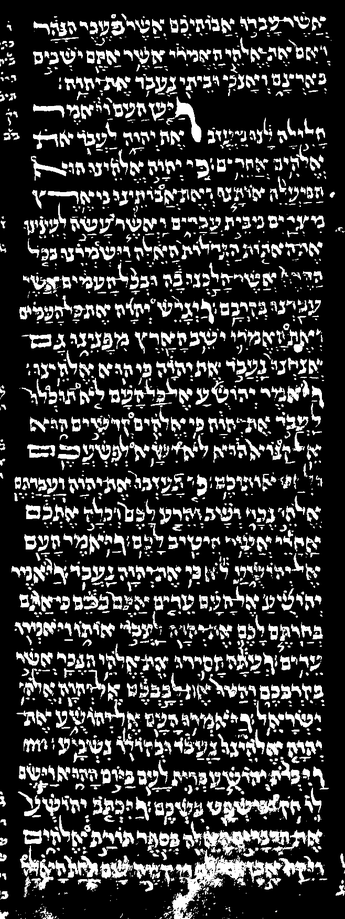 אשר עבדו אבותיכם אשר בעבר הנהר
ואם את־אלהי האמרי אשר אתם ישבים
בארצם ואנכי וביתי נעבד את־יהוה׃
ויען העם ויאמר
חלילה לנו מעזב את יהוה לעבד
אלהים אחרים׃ כי יהוה אלהינו הוא
המעלה אותנו ואת אבותינו מארץ
מצרים מבית עבדים ואשר עשה לעינינו
את האתות הגדלות האלה וישמרנו בכל
הדרך אשר הלכנו בה ובכל העמים אשר
עברנו בקרבם׃ ויגרש יהוה את כל העמים
ואת האמרי ישב הארץ מפנינו גם
אנחנו נעבד את יהוה כי הוא אלהינו׃
ויאמר יהושע אל־כל־העם לא תוכלו
לעבד את יהוה כי אלהים קדשים הוא
אל קנוא הוא לא ישא לפשעכם
כי תעזבו את יהוה ועבדתם
אלהי נכר ושב והרע לכם וכלה אתכם
אחרי אשר היטיב לכם׃ ויאמר העם
אל יהושע לא כי את יהוה נעבד׃ ויאמר
יהושע אל העם עדים אתם בכם כי אתם
בחרתם לכם את יהוה לעבד אותו ויאמרו
עדים׃ ועתה הסירו את אלהי הנכר אשר
בקרבכם והטו את לבבכם אל יהוה אלהי
ישראל׃ ויאמרו העם אל יהושע את
יהוה אלהינו נעבד ובקולו נשמע׃
ויכרת יהושע ברית לעם ביום ההוא וישם
לו חק ומשפט בשכם׃ ויכתב יהושע
את הדברים האלה בספר תורת אלהים
ויקח אבן שם תחת האלה